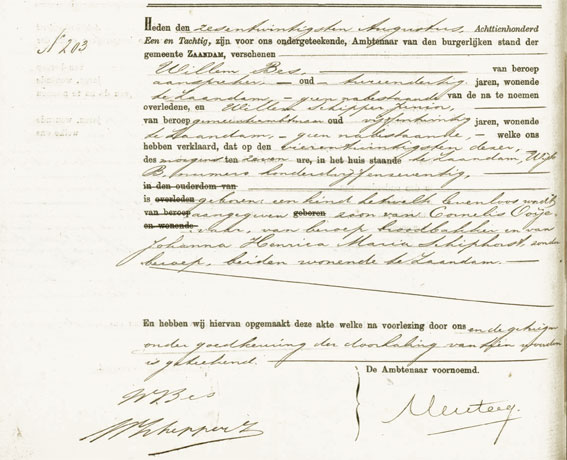 Heden den zesentwintigsten Augustus, Achttienhonderd
No 203
Een en Tachtig, zijn voor ons ondergeteekende, Ambtenaar van den burgerlijken stand der
gemeente ZAANDAM, verschenen
Willem Bes, van beroep
aanspreker, oud tweeendertig jaren, wonende
te Zaandam, geen nabestaande van de na te noemen
overledene, en Willem Schipper
van beroep gemeentebode oud vijfentwintig jaren, wonende
te Zaandam, geen nabestaande, welke ons
hebben verklaard, dat op den vierentwintigsten dezer,
des morgens ten zeven ure, in het huis staande te Zaandam, Wijk
B. nummer honderd zevenzeventig,
in den ouderdom van
is overleden geboren: een kind hetwelk levenloos wordt
van beroep aangegeven geboren zoon van: Cornelis Ooije-
en wonende van beroep broodbakker en van
Johanna Henrica Maria Schiphorst, zonder
beroep, beiden wonende te Zaandam.
En hebben wij hiervan opgemaakt deze akte welke na voorlezing door ons en de getuigen
onder goedkeuring der doorhaling van woorden
is geteekend.
De Ambtenaar voornoemd.
W Bes
W Schipper